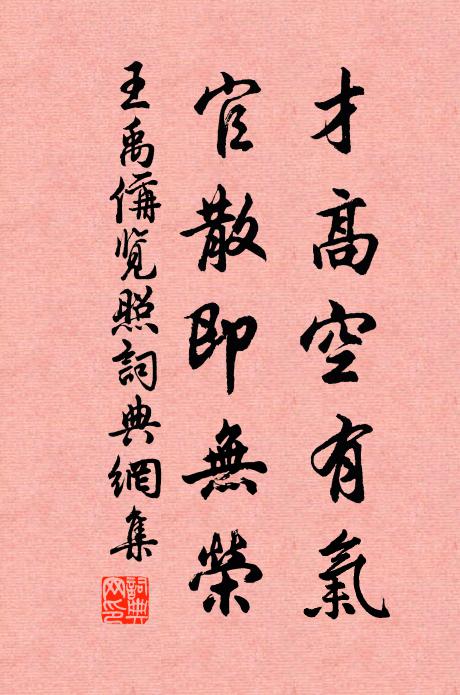 才高空有氣
官散即無榮
王禹偁覽照詞典網集
詞典網印